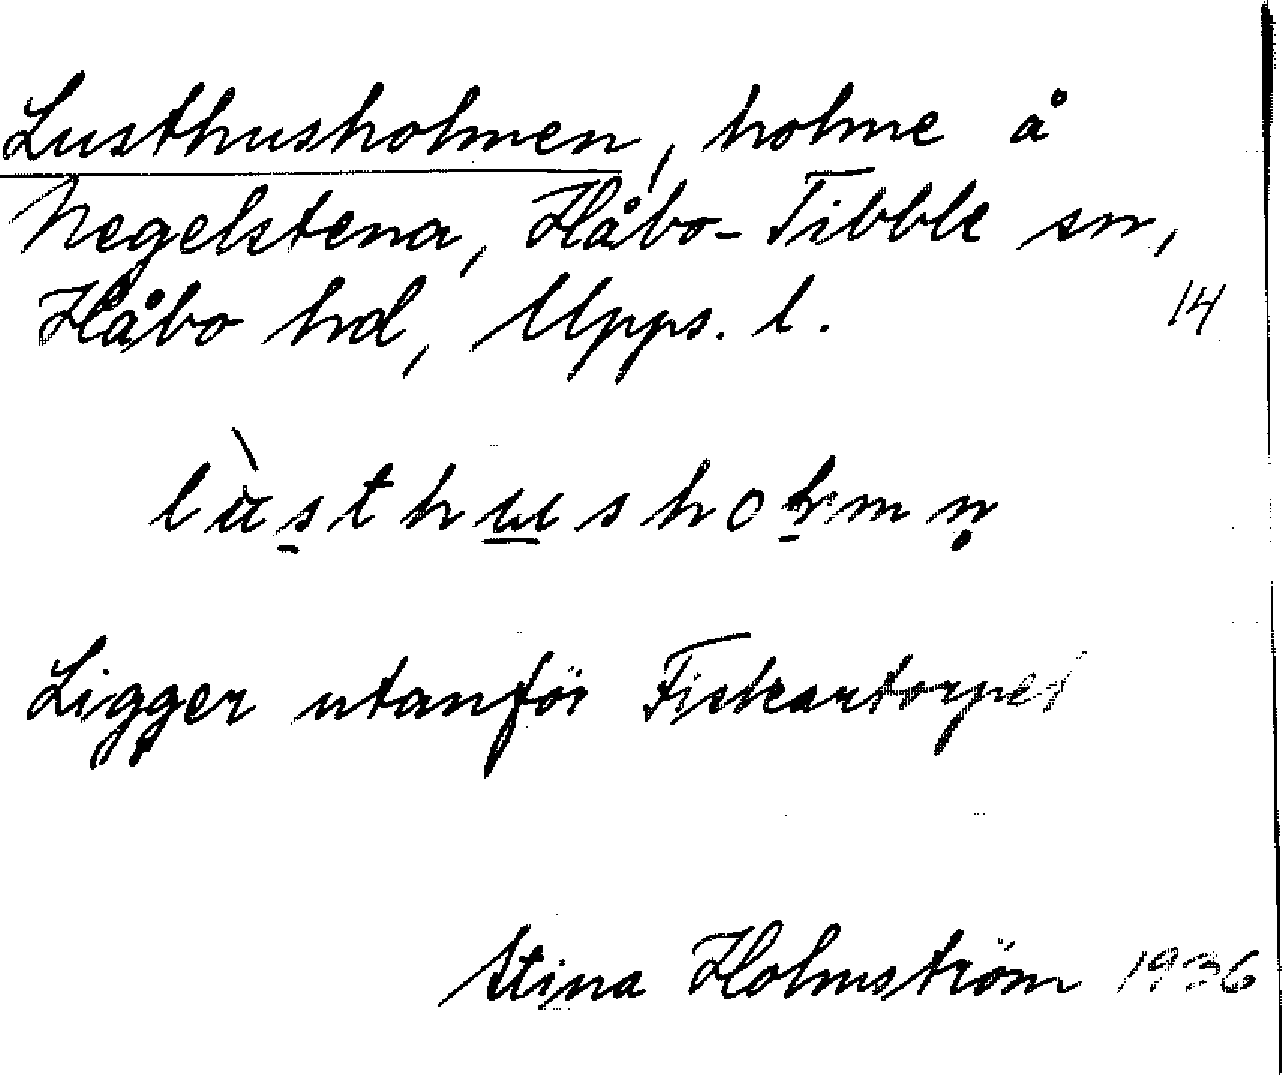 Lusthusholmen, holme å
Negelstena, Håbo-Tibble sn,
Håbo hd, Upps. l. 14
lùsthusholmn̥
Ligger utanför Fiskartorpet
Stina Holmström 1936